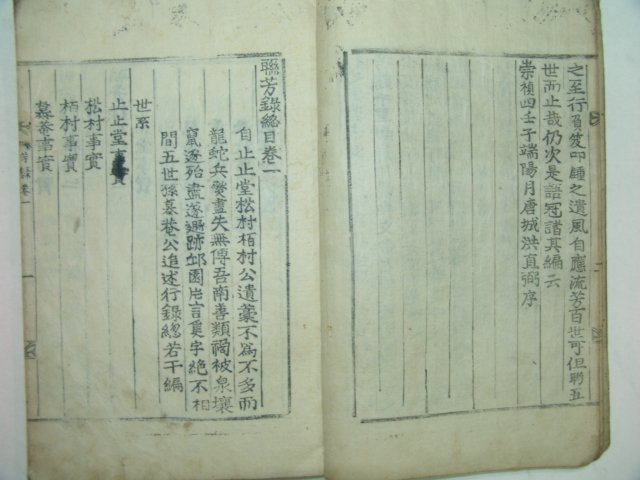 之至行負笈叩鍾之遺風自應流芳百世可但聯五
世而止哉仍次是語冠諸其編云
崇禎四壬子端陽月唐城洪直弼序
聯芳錄總目卷一
自止止堂松村栢村公遺藁不爲不多而
龍蛇兵燹盡失無傳吾南善類禍被泉壤
竄逐殆盡遂遯跡邱園片言隻字絶不相
間五世孫慕菴公追述行錄總若干編
世系
止止堂事實
松村事實
栢村事實
慕菴事實